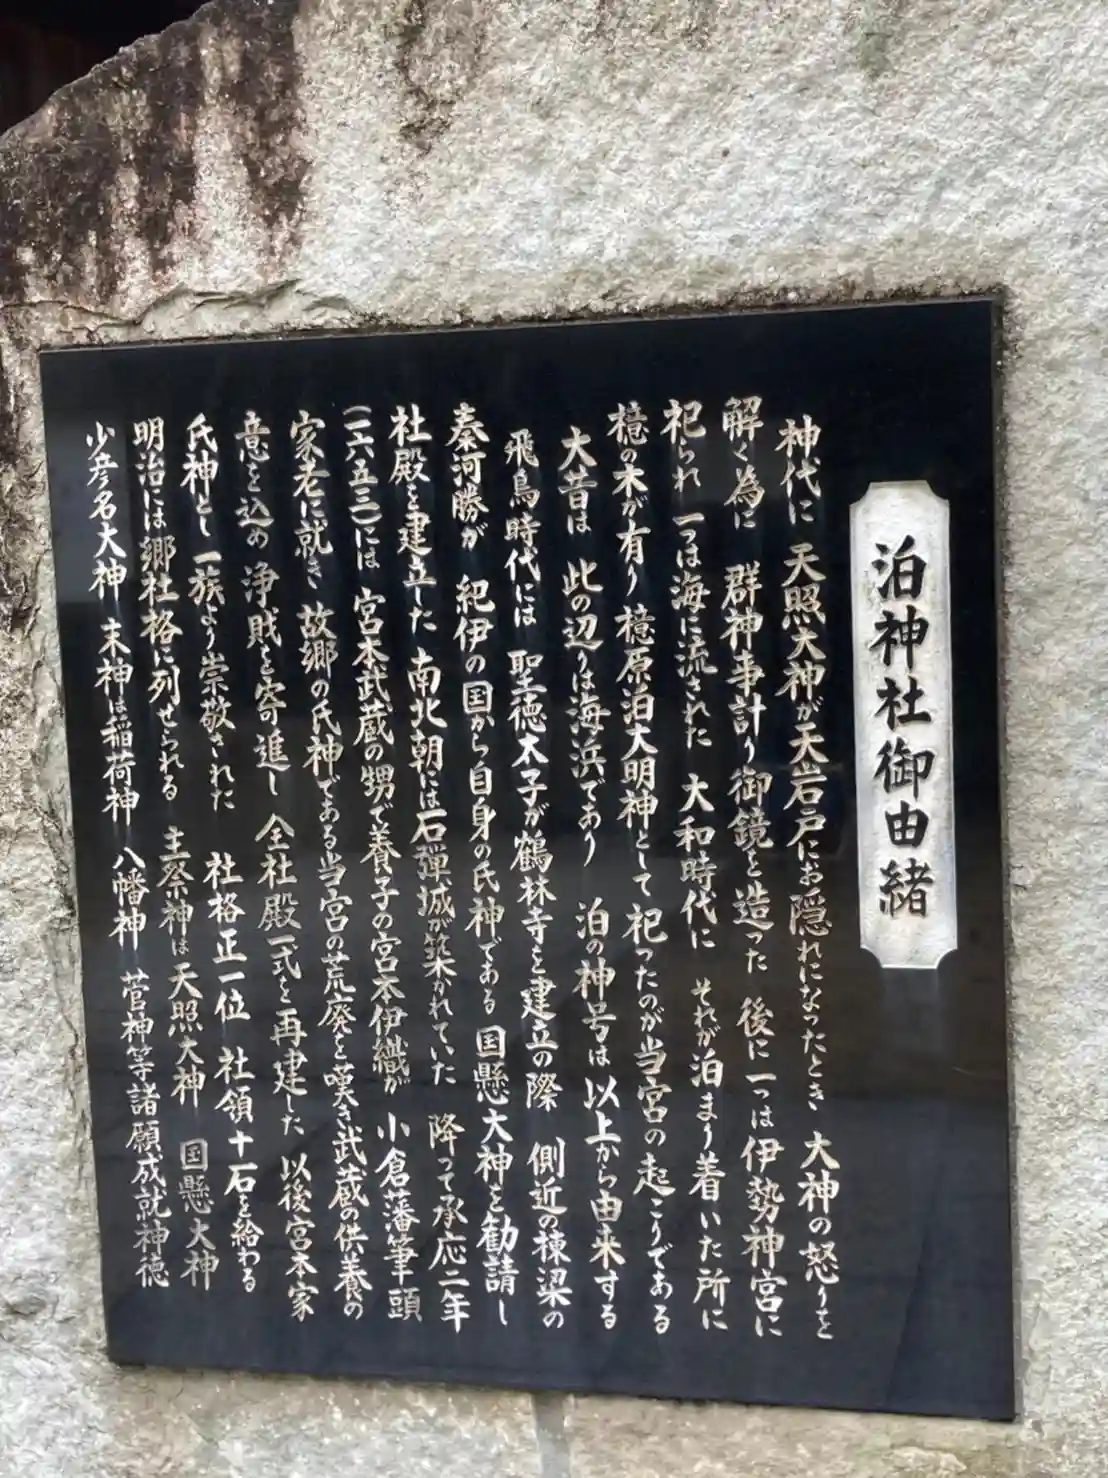 泊神社御由緒
神代に 天照大神が天岩戸にお隠れになったとき 大神の怒りを
解く為に 群神事計り御鏡を造った 後に一つは伊勢神宮に
祀られ 一つは海に流された 大和時代に それが泊まり着いた所に
檍の木が有り 檍原泊大明神として祀ったのが当宮の起こりである
大昔は 此の辺りは海浜であり 泊の神号は以上から由来する
飛鳥時代には 聖徳太子が鶴林寺を建立の際 側近の棟梁の
秦河勝が 紀伊の国から自身の氏神である国懸大神を勧請し
社殿を建立した 南北朝には石弾城が築かれていた 降って承応二年
(一六五三)には 宮本武蔵の甥で養子の宮本伊織が 小倉藩筆頭
家老に就き 故郷の氏神である当宮の荒廃を嘆き武蔵の供養の
意を込め 浄財を寄進し 全社殿一式を再建した 以後宮本家
氏神とし 一族より崇敬された 社格正一位 社領十石を給わる
明治には郷社格に列せられる 主祭神は天照大神 国懸大神
少彦名大神 末神は稲荷神 八幡神 菅神等諸願成就神徳